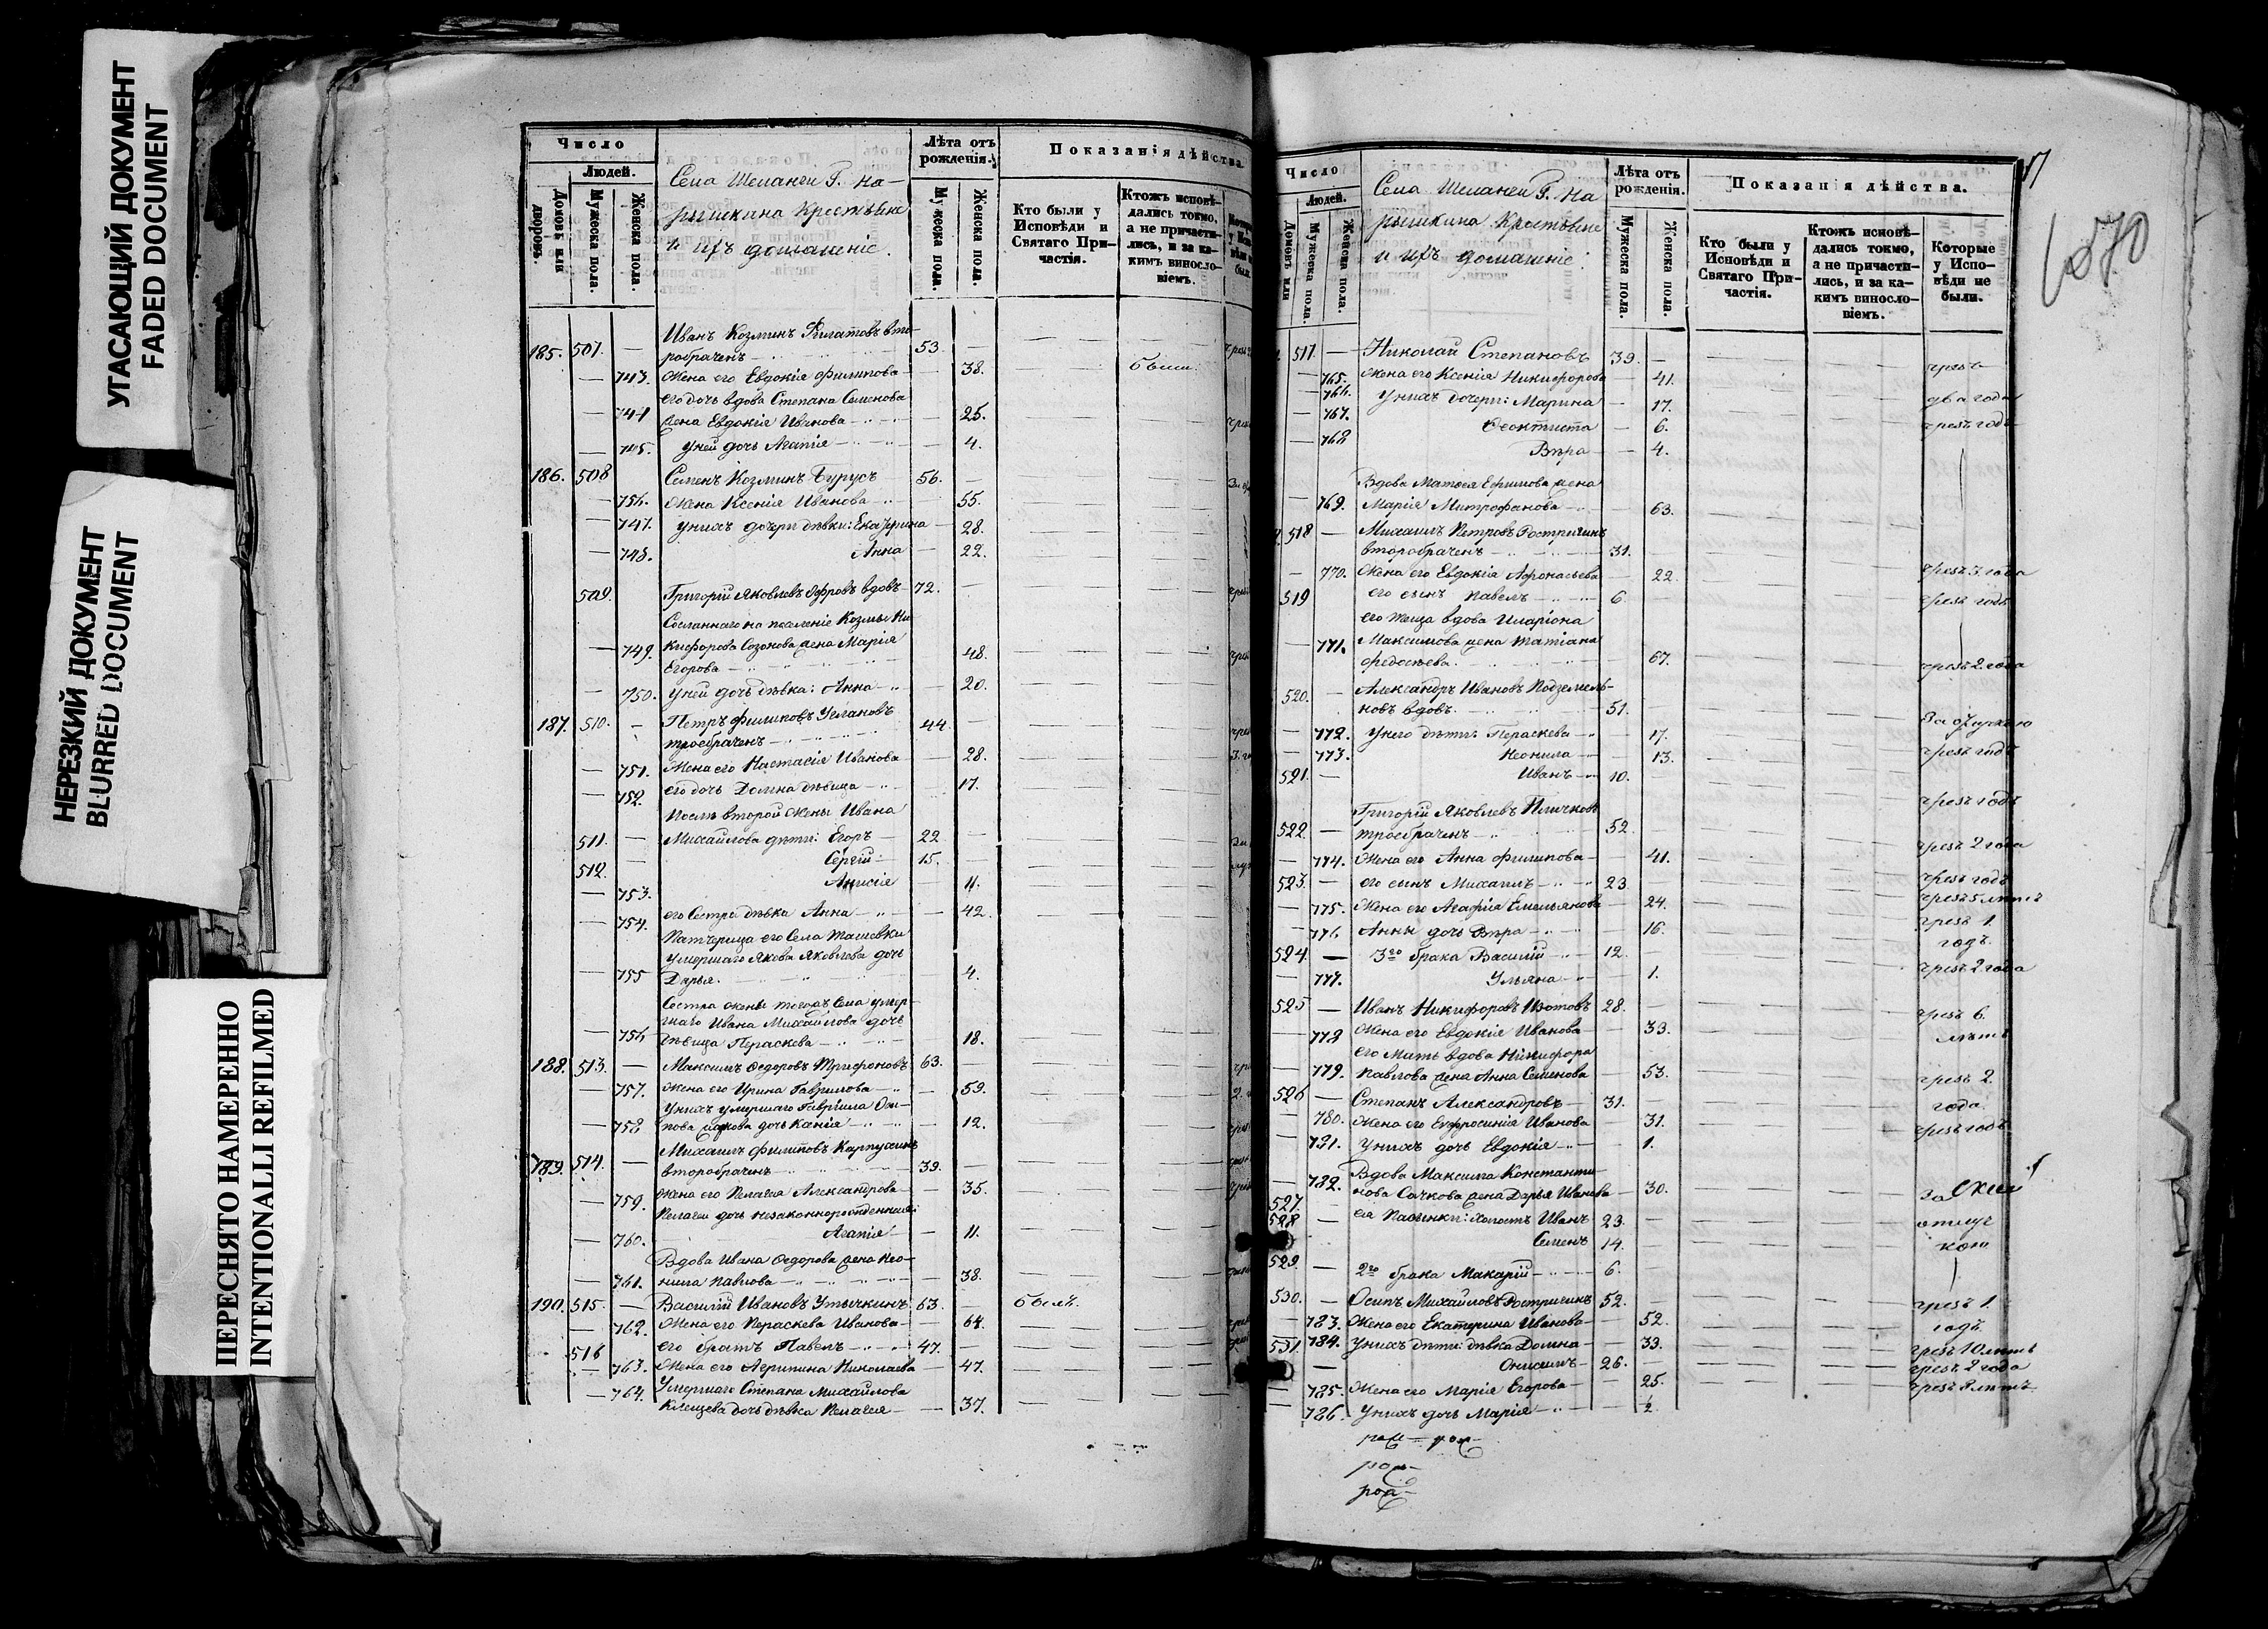 УГАСАЮЩИЙ ДОКУМЕНТ
FADED DOCUMENT
НЕРЕЗКИЙ ДОКУМЕНТ
BLURRED DOCUMENT
ПЕРЕСНЯТО НАМЕРЕННО
INTENTIONALLI REFILMED
Число
Людей.
Домовъ или дворовъ.
Мужеска пола.
Женска пола.
Села Шепанги Г. На-
рышкина Крестьяне
и ихъ домашніе.
Лѣта отъ рожденія.
Мужеска пола.
Женска пола.
Показанія дѣйства.
Кто были у Исповѣди и Святаго При-частія.
Ктожъ исповѣ-дались токмо, а не причасти-лись, и за ка-кимъ виносло-віемъ.
185. 507. — Иванъ Козминъ вто-
рображенъ 53. —
— 743. Жена его Евдокія Филипова — 38. были
его дочь вдова Степана Семенова
— 744 жена Евдокія Иванова — 25.
— 745. у ней дочь Агапія — 4.
186. 508 Семенъ Козминъ Бурусъ 56. —
— 756. Жена Ксенія Иванова 55.
— 747. у нихъ дочери дѣвки: Екатерина — 28.
— 748. Анна — 22.
509. Григорій Яковлевъ вдовъ 72. —
Сосланнаго на поселеніе Козмы Ни
— 749. кифорова Созонова жена Марія
Егорова — 48.
— 750. у ней дочь дѣвка: Анна — 20.
187. 510. — Петръ Филиповъ
троебраченъ 44. —
— 751. Жена его Настасія Иванова — 28.
— 752. его дочь Домна дѣвица — 17.
Послѣ второй жены Ивана
511. — Михайлова дѣти: Егоръ 22 —
512. — Сергій 15. —
— 753. Анисія — 11.
— 754. его Сестра дѣвка Анна — 42.
Патчерица его Села Ташевки
умершаго Якова Яковлева дочь
755 Дарья. 4.
Сестра жены тогожъ Села умер-
шаго Ивана Михайлова дочь
— 756 дѣвица Пераскева — 18.
188. 513. — Максимъ Ѳедоровъ Трифоновъ 63.
— 757. Жена его Ирина Гаврилова — 59.
у нихъ умершаго Гавріила Оси-
— 758 пова дочь Ксенія — 12.
Михаилъ Филиповъ Карпухинъ
189. 514. — второбраченъ 39. —
— 759. Жена его Пелагея Александрова — 35.
Пелагеи дочь незаконнорожденная:
— 760. Агапія — 11.
Вдова Ивана Ѳедорова жена Нео-
— 761. нила Павлова — 38.
190. 515. — Василій Ивановъ Утычкинъ 63. — былъ.
— 762. Жена его Пераскева Иванова — 64.
516 его братъ Павелъ 47.
— 763. Жена его Агрипина Николаева — 47.
— 764. Умершаго Степана Михайлова
Клещева дочь дѣвка Пелагея — 37.
Число
Людей.
Домовъ или
Мужеска пола.
Женска пола.
Села Шепанги Г. На
рышкина Крестьяне
и ихъ домашніе
Лѣта отъ рожденія.
Мужеска пола.
Женска пола.
Показанія дѣйства.
Кто были у Исповѣди и Святаго При-частія.
Ктожъ исповѣ-дались токмо, а не причасти-лись, и за ка-кимъ виносло-віемъ.
Которые у Испо-вѣди не были.
1070
517. — Николай Степановъ 39. — чрезъ
— 765. Жена его Ксенія Никифорова — 41. два года
— 766. у нихъ дочери: Марина — 17. чрезъ годъ
— 767. Ѳеоктиста — 6.
— 768 Вѣра — 4.
Вдова Матвея Ефимова жена
— 769. Марія Митрофанова — 63.
518 — Михаилъ Петровъ Востригинъ
второбраченъ 31.
— 770. Жена его Евдокія Афонасьева — 22. чрезъ 3. года
519 его сынъ Павелъ 6. чрезъ годъ
его теща вдова Иларіона
— 771. Максимова жена Татіана
Федосѣева. 67. чрезъ 2. года
520. — Александръ Ивановъ Подземель-
новъ вдовъ 51. За отлучкою
— 772. у него дѣти: Пераскева — 17. чрезъ годъ
— 773. Неонила — 13.
521. — Иванъ 10. чрезъ годъ
Григорій Яковлевъ
522. — троебраченъ 52. чрезъ 2 года
— 774. Жена его Анна Филипова — 41. чрезъ годъ
523. — его сынъ Михаилъ 23. чрезъ 5 лѣтъ
— 775. Жена его Агафія Емельянова — 24. чрезъ 1.
— 776 Анны дочь Вѣра — 16. годъ.
524. — 3го брака Василій 12. чрезъ 2 года
— 777. Ульяна — 1.
525 — Иванъ Никифоровъ Изотовъ 28. чрезъ 6.
— 778 Жена его Евдокія Иванова — 33. лѣтъ
его Мать вдова Никифора
— 779. Павлова жена Анна Семенова — 53. чрезъ 2.
526 — Степанъ Александровъ 31. года.
— 780. Жена его Евфросинія Иванова — 31. чрезъ годъ
— 781. у нихъ дочь Евдокія — 1.
Вдова Максима Константи-
— 782. нова Сачкова жена Дарья Иванова — 30.
527.
528 — ея пасынки: холостъ Иванъ 23.
Семенъ 14.
529. — 2го брака Макарій 6.
530. — Осипъ Михайловъ Востригинъ 52. чрезъ 1.
— 783. Жена его Екатерина Иванова — 52. годъ.
531. 784. у нихъ дѣти: дѣвка Домна — 33. чрезъ 10 лѣтъ
— Онисимъ 26. чрезъ 2 года
— 785. Жена его Марія Егорова — 25. чрезъ 8 лѣтъ
— 786. у нихъ дочь Марія — ½